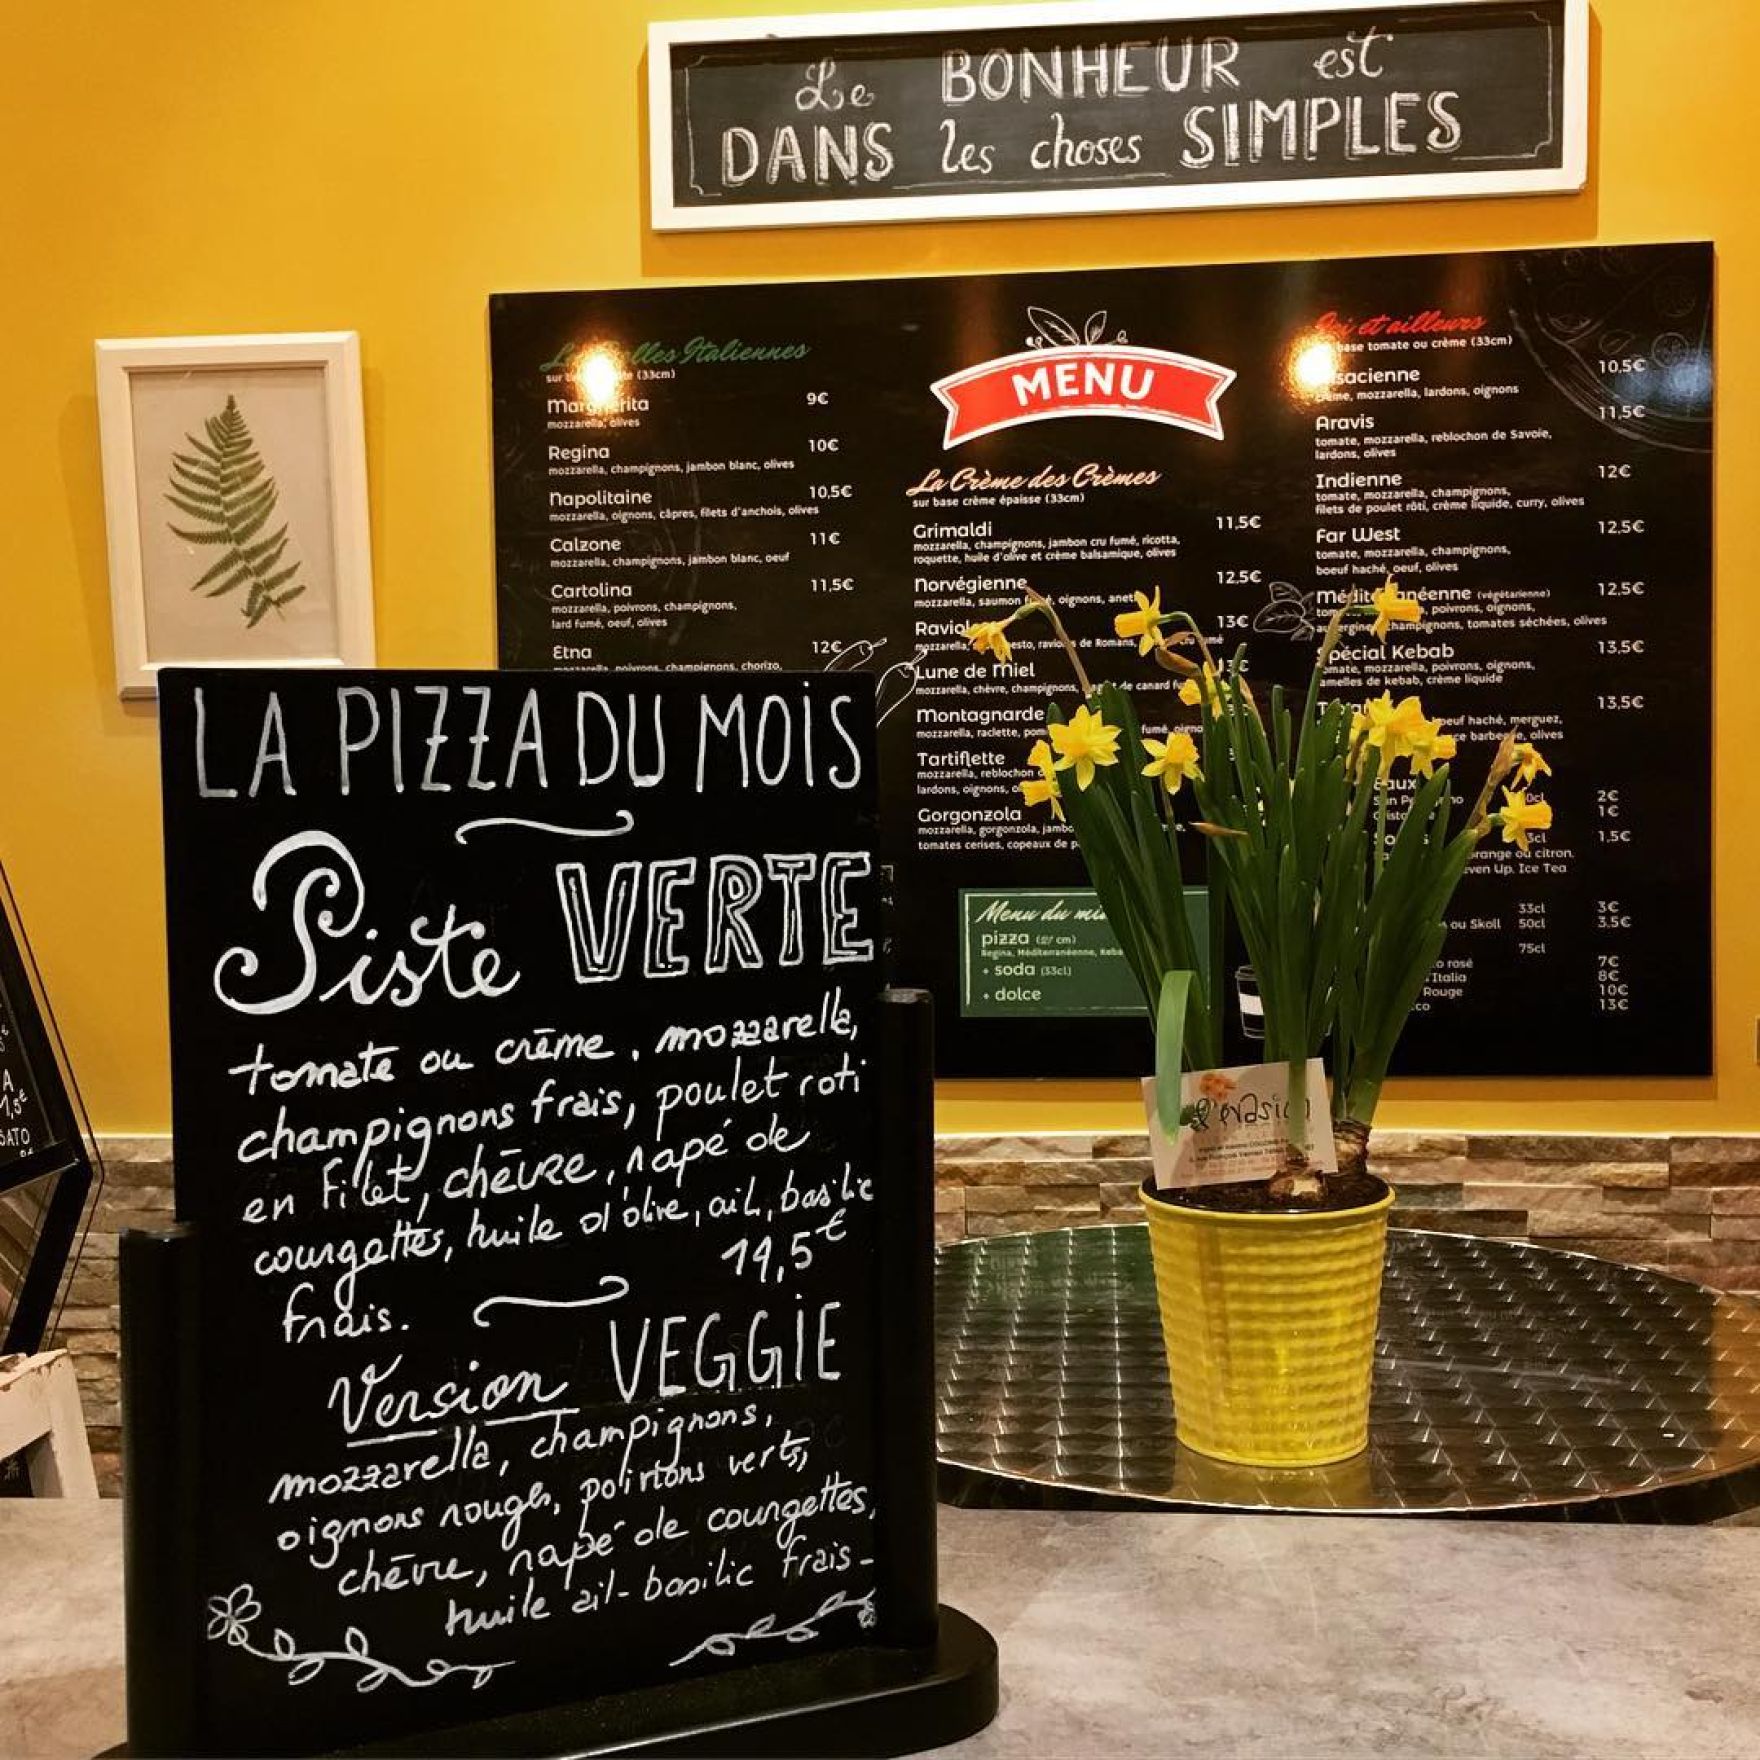 Le BONHEUR est
DANS les choses SIMPLES
Italiennes
(33cm)
9€
mozzarella, olives
Regina 10€
mozzarella, champignons, jambon blanc, olives
Napolitaine 10,5€
mozzarella, oignons, câpres, filets d'anchois, olives
Calzone 11€
mozzarella, champignons, jambon blanc, oeuf
Cartolina 11,5€
mozzarella, poivrons, champignons,
lard fumé, oeuf, olives
Etna 12€
mozzarella, poivrons, champignons, chorizo,
MENU
La Crème des Crèmes
sur base crème épaisse (33cm)
Grimaldi 11,5€
mozzarella, champignons, jambon cru fumé, ricotta,
roquette, huile d'olive et crème balsamique, olives
Norvégienne 12,5€
mozzarella, saumon oignons,
13€
mozzarella, ravioles de Romans,
Lune de Miel
mozzarella, chèvre, champignons, de canard
Montagnarde
mozzarella, raclette, fumé,
Tartiflette
mozzarella, reblochon
lardons, oignons,
Gorgonzola
mozzarella, gorgonzola,
tomates cerises, copeaux de
Menu du
pizza
+ soda (33cl)
+ dolce
et ailleurs
base tomate ou crème (33cm)
10,5€
mozzarella, lardons, oignons
Aravis 11,5€
tomate, mozzarella, reblochon de Savoie,
lardons, olives
Indienne 12€
tomate, mozzarella, champignons,
filets de poulet rôti, crème liquide, curry, olives
Far West 12,5€
tomate, mozzarella, champignons,
boeuf haché, oeuf, olives
(végétarienne) 12,5€
poivrons, oignons,
champignons, tomates séchées, olives
Spécial Kebab 13,5€
tomate, mozzarella, poivrons, oignons,
lamelles de kebab, crème liquide
13,5€
boeuf haché, merguez,
olives
Eaux
2€
1€
1,5€
orange ou citron,
Ice Tea
33cl 3€
ou Skoll 50cl 3,5€
75cl
rosé 7€
8€
Rouge 10€
13€
LA PIZZA DU MOIS
Piste VERTE
tomate ou crème, mozzarella,
champignons frais, poulet roti
en filet, chèvre, rapé de
courgettes, huile d'olive, ail, basilic
frais. 14,5€
Version VEGGIE
mozzarella, champignons,
oignons rouges, poivrons verts,
chèvre, rapé de courgettes,
huile ail-basilic frais-